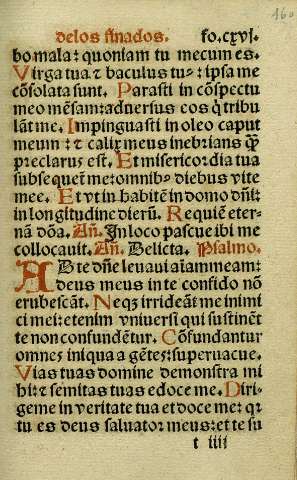 160
delos finados. fo.cxvi.
bo mala: quoniam tu mecum es.
Virga tua ⁊ baculus tu⁹: ipsa me
cõsolata sunt. Parasti in cõspectu
meo mẽsam: aduersus eos q̃ tribu
lãt me. Impinguasti in oleo caput
meum: ⁊ calix meus inebrians q̃
preclarus est. Et misericordia tua
subsequeť me: omnib⁹ diebus vite
mee. Et vt in habitẽ in domo dñi:
in longitudine dierũ. Requiẽ eter-
nã dõa. Añ. In loco pascue ibi me
collocauit. Añ. Delicta. Psalmo.
Ad te dñe leuaui aĩam meam:
deus meus in te confido nõ
erubescãt. Neqʒ irrideãt me inimi
ci mei: etenim vniuersi qui sustinẽt
te non confundẽtur. Cõfundantur
omnes iniqua agẽtes: superuacue.
Vias tuas domine demonstra mi
hi: ⁊ semitas tuas edoce me. Diri-
ge me in veritate tua et doce me: qr
tu es deus saluator meus: et te su
t iiij